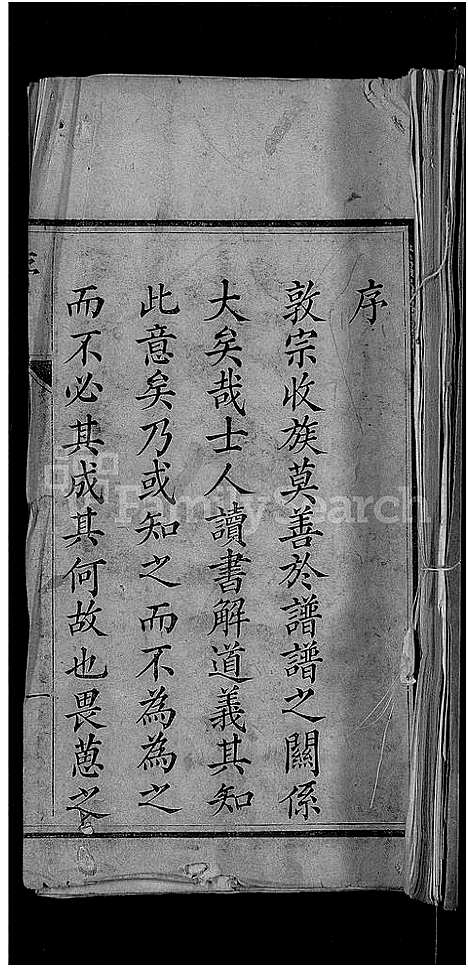 序
敦宗收族莫善於譜譜之關係
大矣哉士人讀書解道義其知
此意矣乃或知之而不為為之
而不必其成其何故也畏葸之
FamilySearch